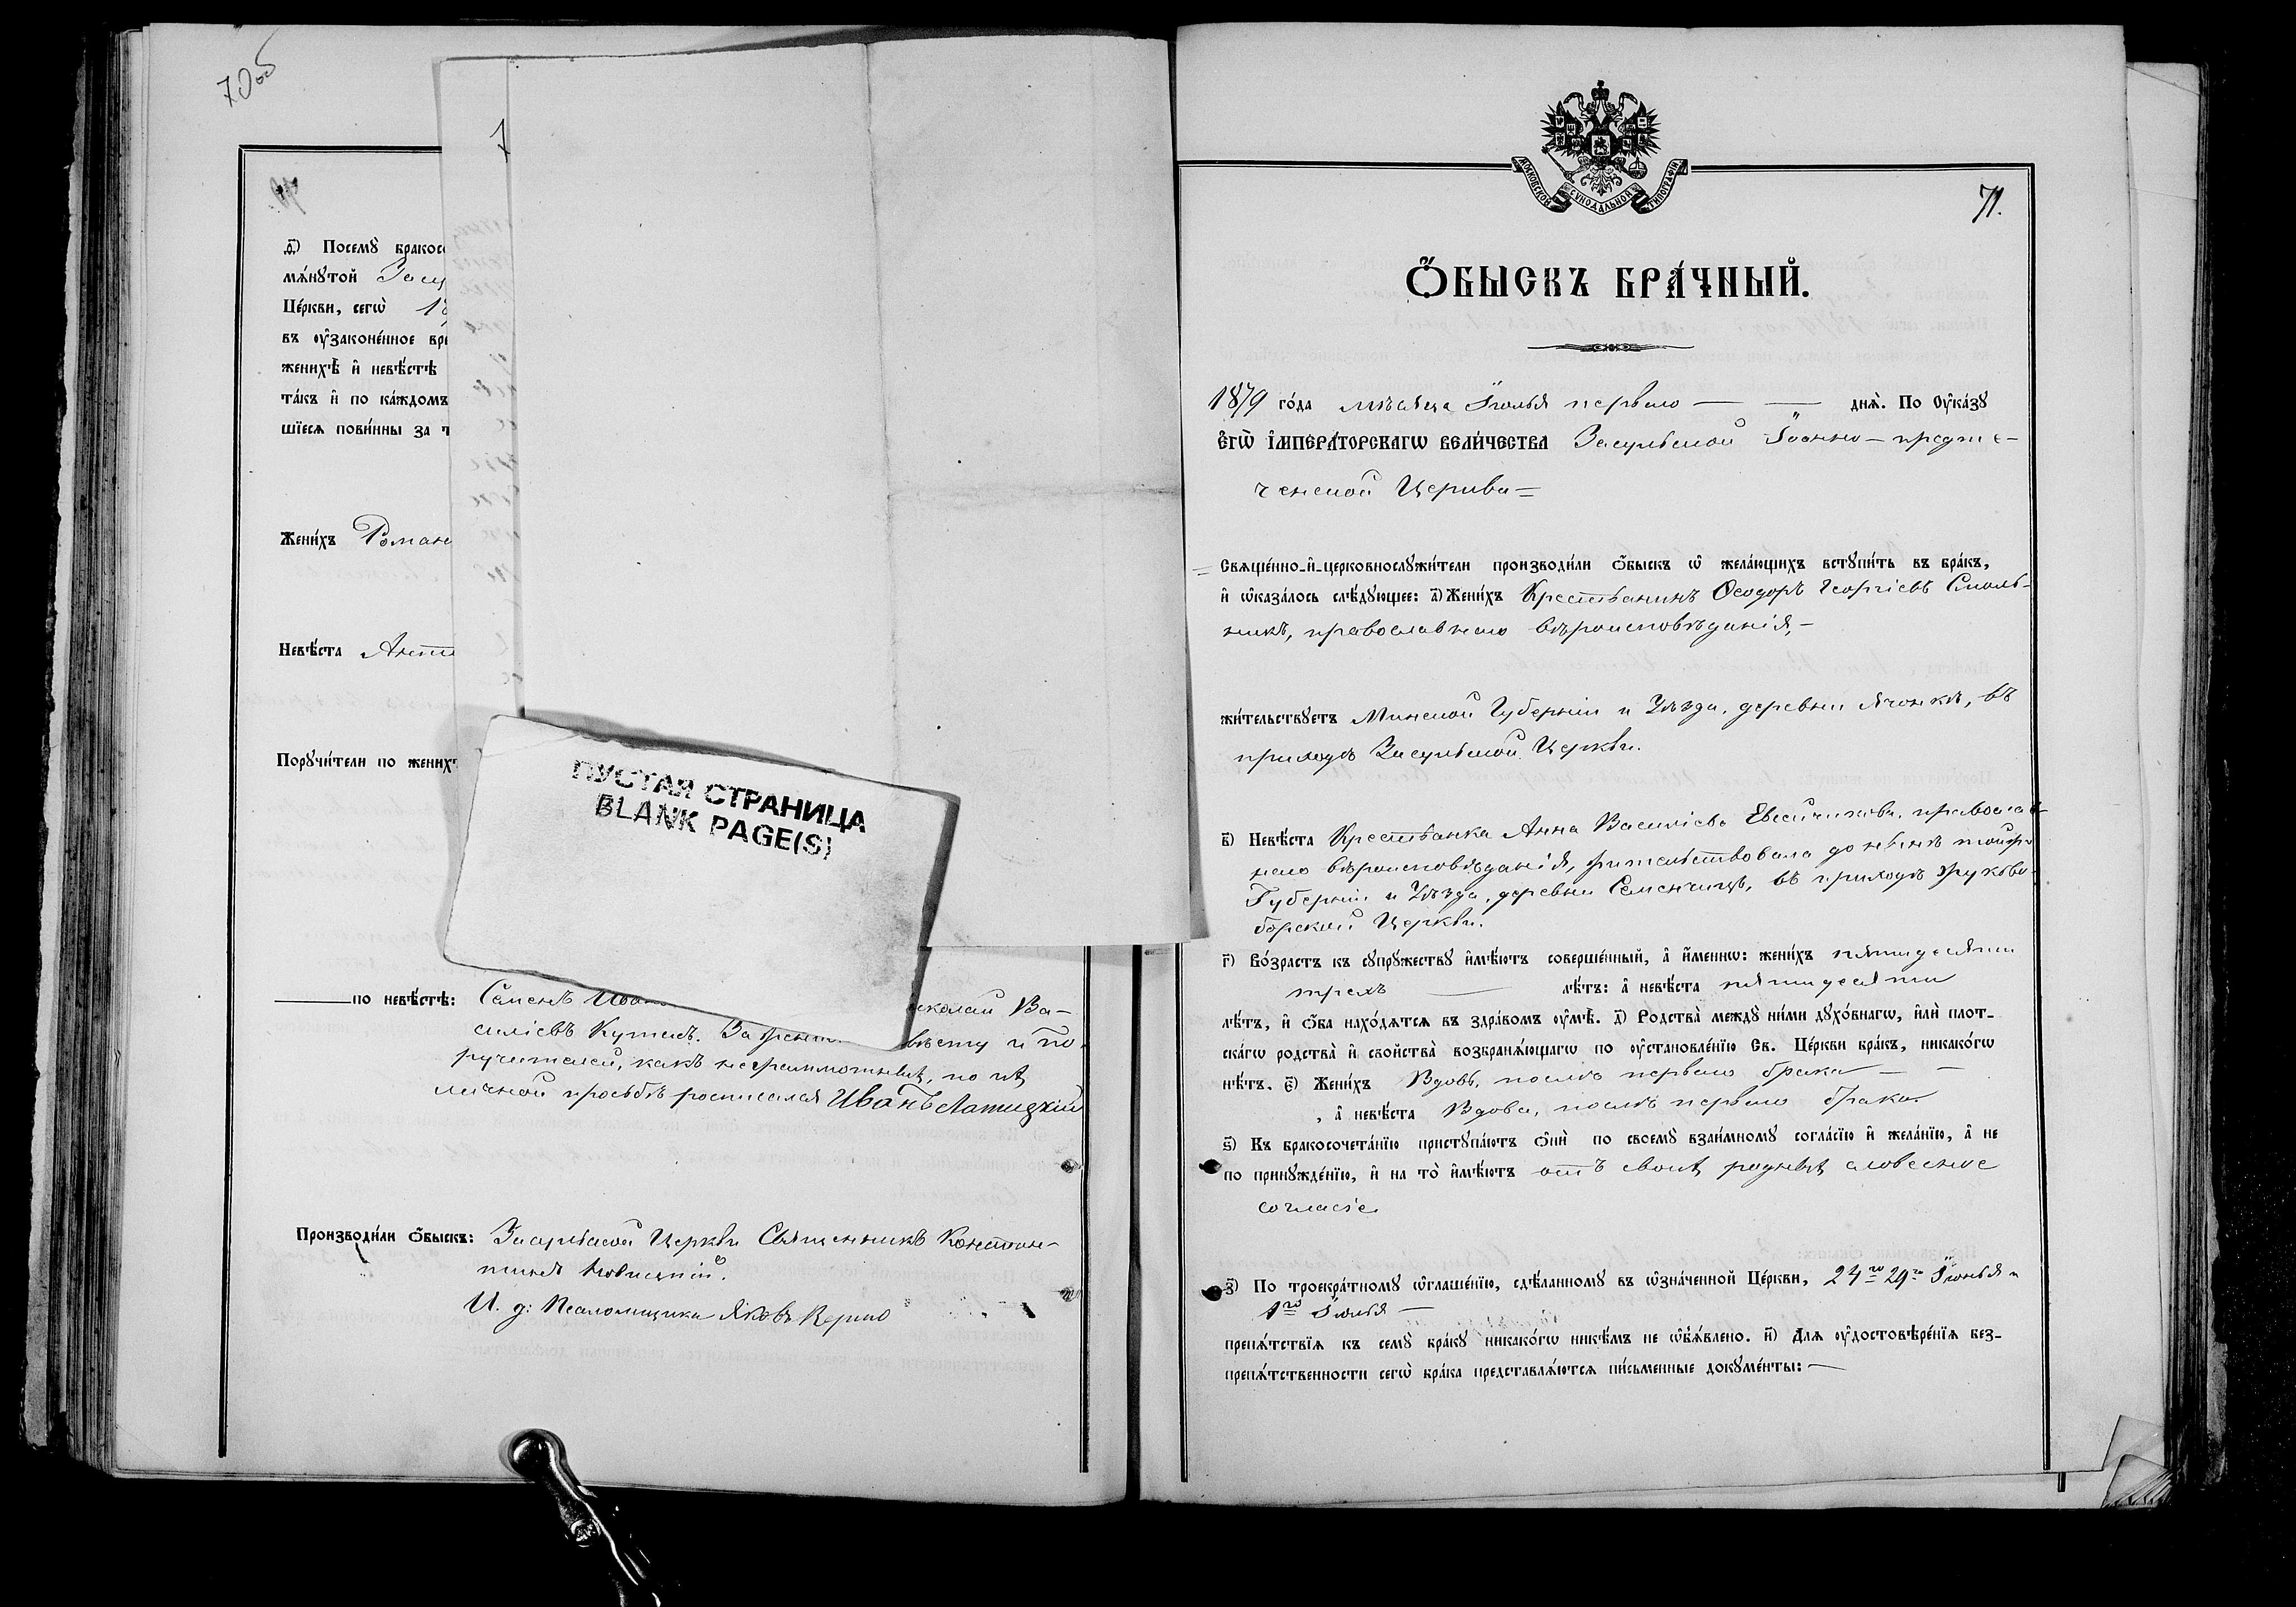 70об
д) Посемȣ бракосо
мѧнȣтой Засу
Церкви, сегѡ 18
въ ѹзаконенное вре
женихѣ и невѣстѣ
такъ и по каждомъ
шїесѧ повинны за т
Женихъ Роман
Невѣста Анто
Порȣчители по жених
ПУСТАЯ СТРАНИЦА
BLANK PAGE(S)
по невѣстѣ: Семенъ Иван иколай Ва-
силіевъ Кутасъ. За вѣсту и по-
ручителей, какъ неграмотныхъ, по ихъ
личной просьбѣ росписался Иванъ
Производили ѻбыскъ: Засульской Церкви Священникъ Констан-
тинъ
И. д. Псаломщика Яковъ
МОСКОВСКОЙ СѴНОДАЛЬНОЙ ТИПОГРАФІИ
71.
ѺБЫСКЪ БРАЧНЫЙ.
1879 года мѣсяца Іюлья перваго — — днѧ. По Ѹказȣ
ЕГѠ ІМПЕРАТОРСКАГѠ ВЕЛИЧЕСТВА Засульской Іоанно-предте-
ченской Церкви=
Свѧщенно-и-церковнослȣжители производили ѻбыскъ ѡ желающихъ вступить въ бракъ,
и ѡказалось слѣдȣющее: а) Женихъ Крестьянинъ Ѳеодоръ Георгіевъ Смоль-
никъ, православнаго вѣроисповѣданія,-
жительствȣетъ Минской Губерніи и Уѣзда, деревни Ячонкѣ, въ
приходѣ Засульской Церкви.
в) Невѣста Крестьянка Анна Василіева православ-
наго вѣроисповѣданія, жительствовала до нынѣ той же
Губерніи и Уѣзда, деревни Семенчицъ, въ приходѣ Жуково-
борской Церкви.
г) Возрастъ къ сȣпрȣжествȣ имѣютъ совершенный, а именнѡ: женихъ пятидесяти
трехъ — лѣтъ: а невѣста пятидесяти
лѣтъ, и ѻба находѧтсѧ въ здравомъ ѹмѣ. д) Родства междȣ ними дȣховнагѡ, или плот-
скагѡ родства и свойства возбранѧющагѡ по ѹстановленїю Св. Церкви бракъ, никакогѡ
нѣтъ. є) Женихъ Вдовъ, послѣ перваго брака — —
, а невѣста Вдова, послѣ перваго брака.
ѕ) Къ бракосочетанїю пристȣпаютъ ѻни по своемȣ взаимномȣ согласїю и желанїю, а не
по принȣжденїю, и на то имѣютъ отъ своихъ родныхъ словесное
согласіе
з) По троекратномȣ ѡглашенїю, сдѣланномȣ въ ѡзначенной Церкви, 24го 29го Іюнья и
1го Іюлья —
препѧтствїѧ къ семȣ бракȣ никакогѡ никѣмъ не ѡбъѧвлено. и) Длѧ ѹдостовѣренїѧ без-
препѧтственности сегѡ брака представлѧютсѧ письменные докȣменты: —